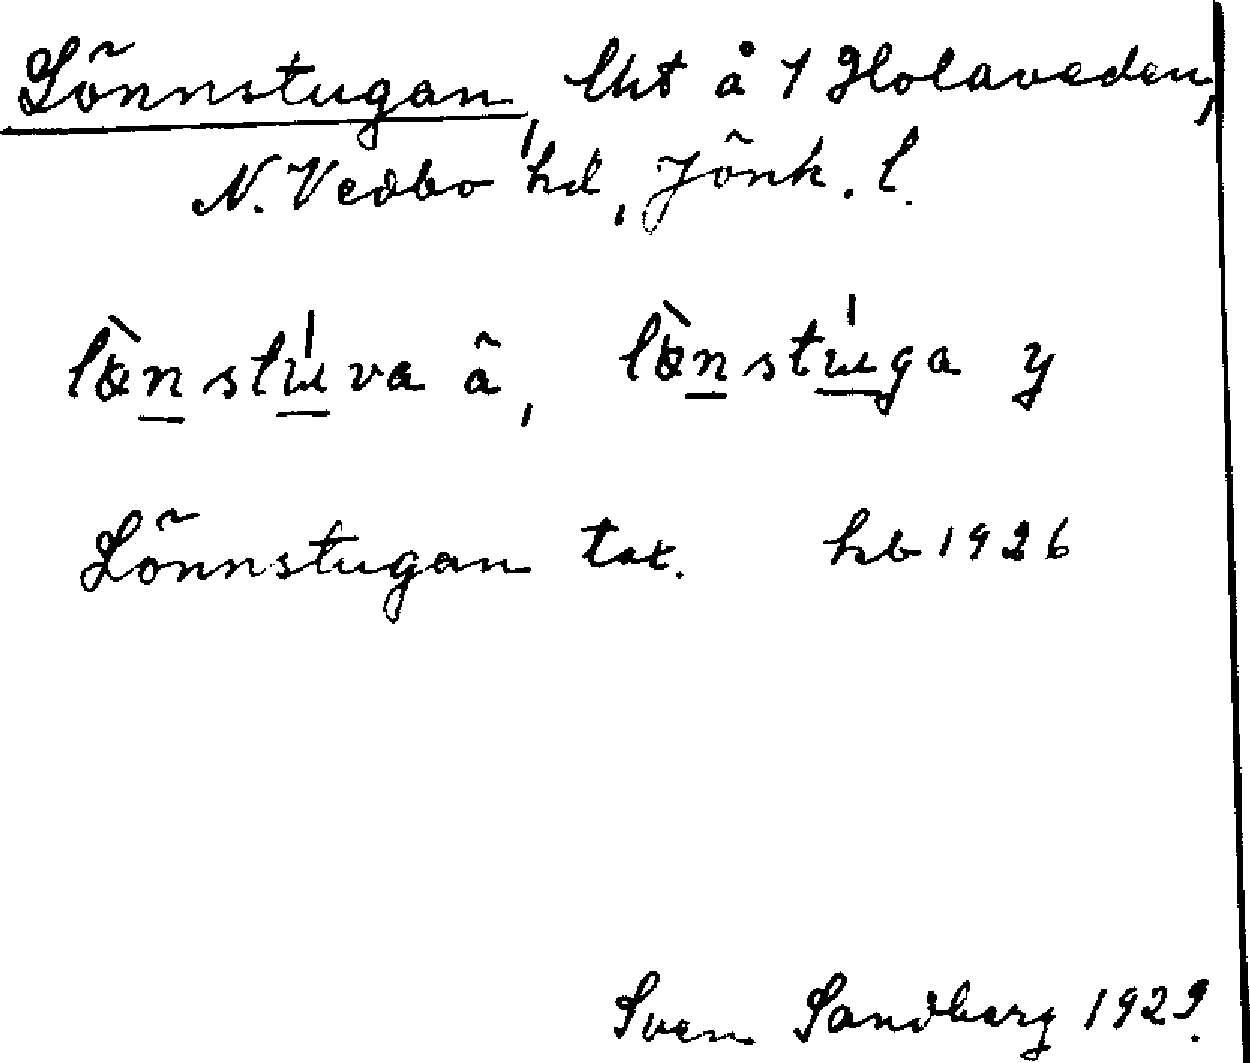 Lönnstugan, lht å 1 Holaveden,
N. Vedbo hd, Jönk. l.
lœ̀nstúva ä, lœ̀nstúga y
Lönnstugan tax. hb 1926
Sven Sandberg 1929.